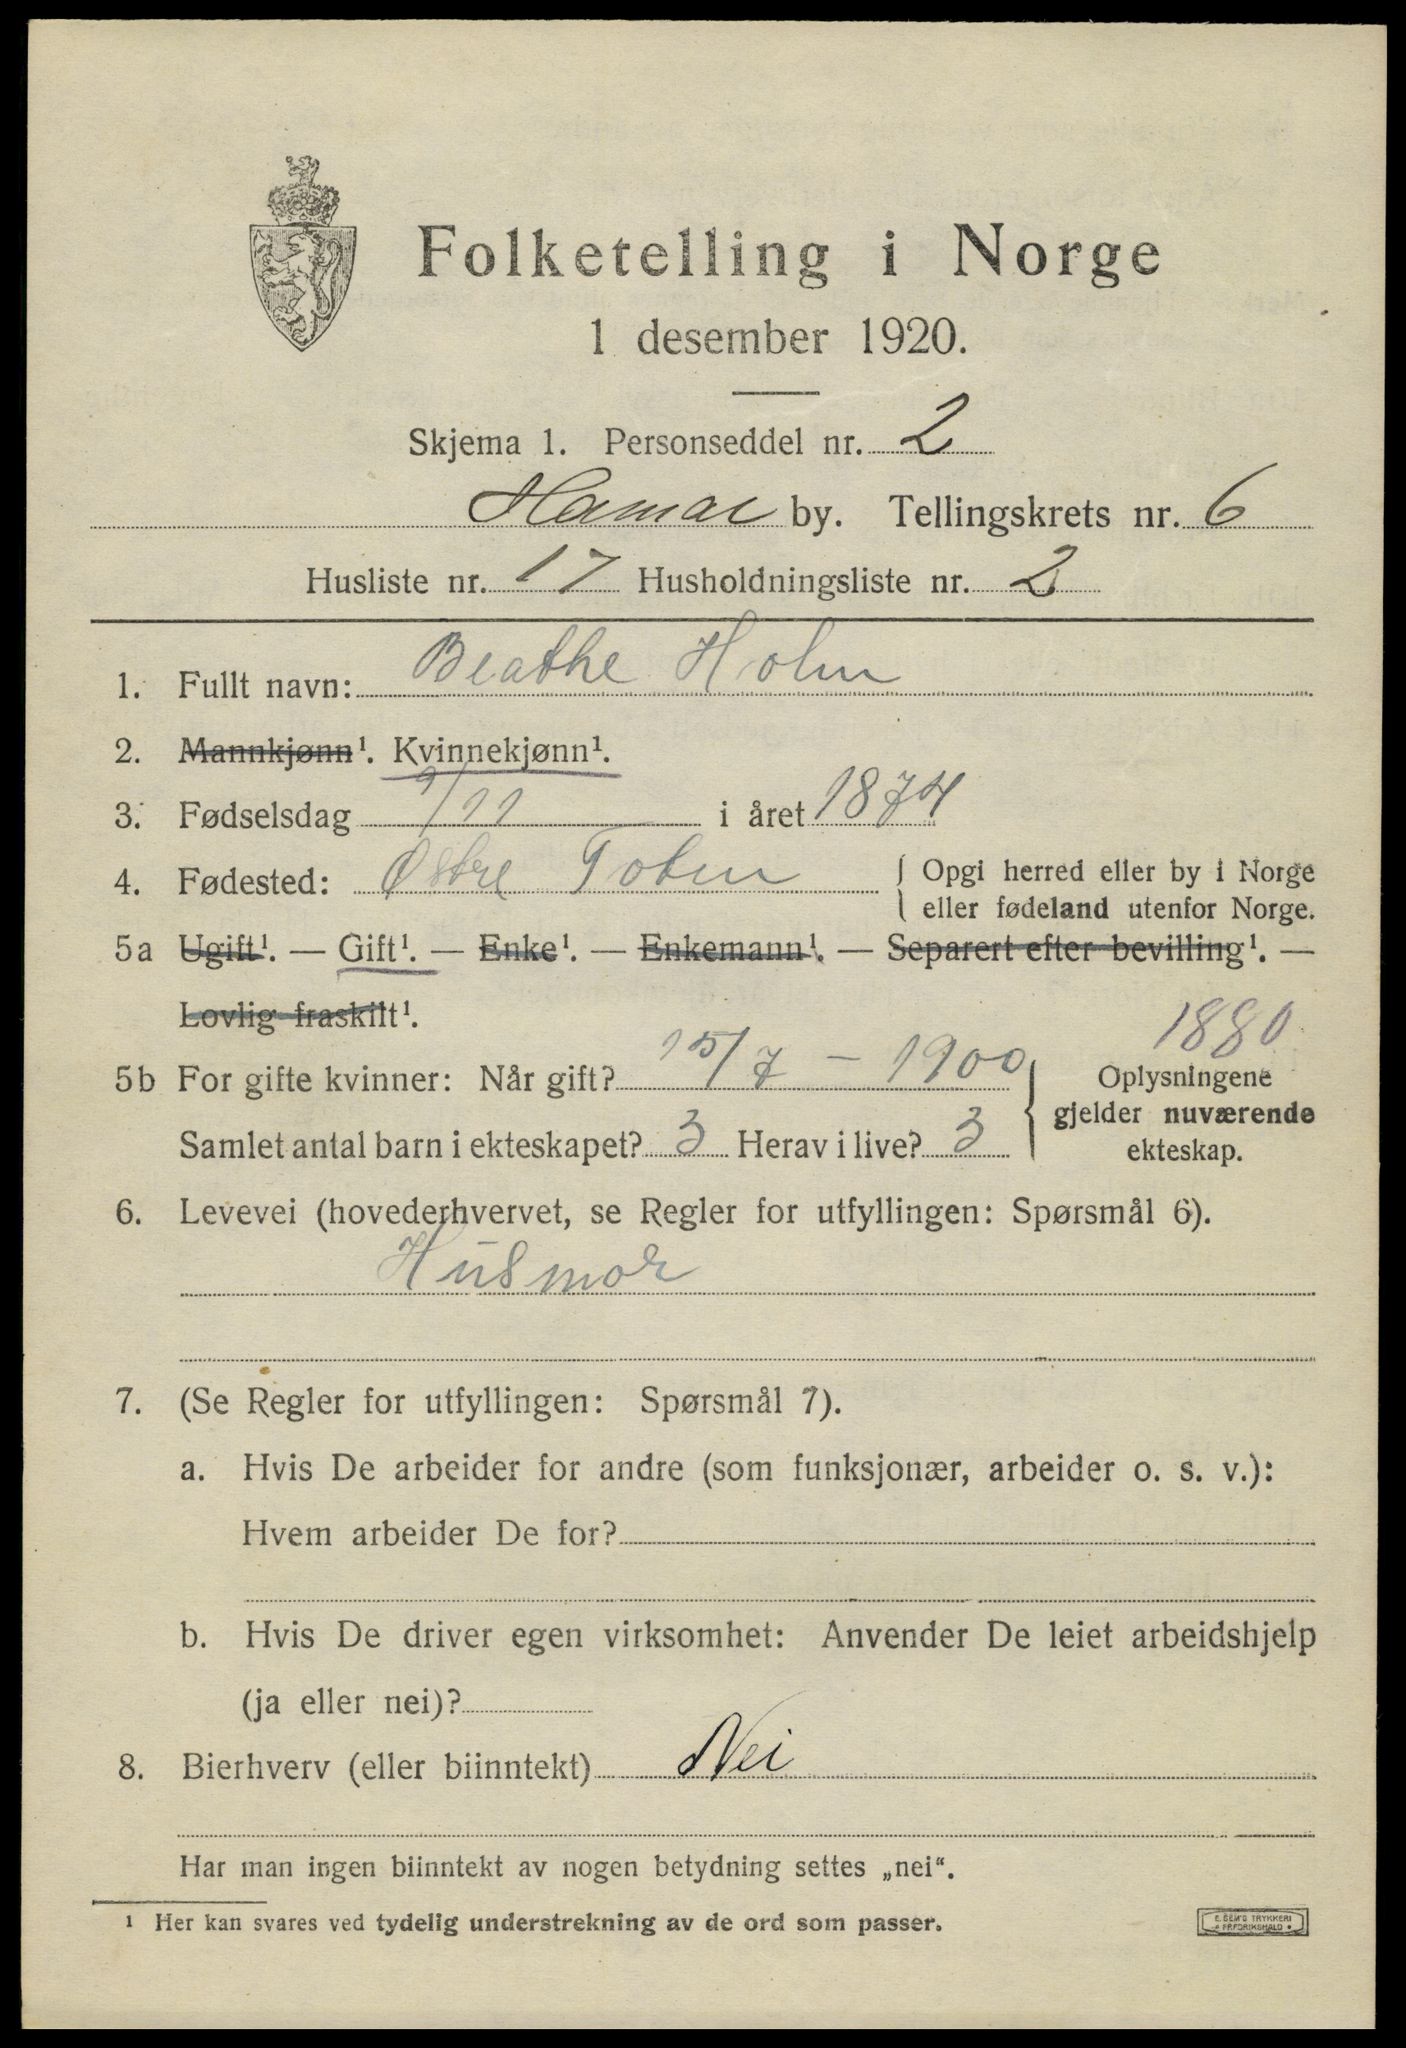 Folketelling i Norge
1 desember 1920.
Skjema 1. Personseddel nr. 2
Hamar by. Tellingskrets nr. 6
Husliste nr. 17 Husholdningsliste nr. 2
1. Fullt navn: Beathe Holm
2. Mannkjønn¹. Kvinnekjønn¹.
3. Fødselsdag 9/11 i året 1874
4. Fødested: Østre Toten { Opgi herred eller by i Norge
eller fødeland utenfor Norge.
5a Ugift¹. — Gift¹. — Enke¹. — Enkemann¹. — Separert efter bevilling¹. —
Lovlig fraskilt¹.
1880
5b For gifte kvinner: Når gift? 15/7 – 1900 } Oplysningene
gjelder nuværende
Samlet antal barn i ekteskapet? 3 Herav i live? 3 ekteskap.
6. Levevei (hovederhvervet, se Regler for utfyllingen: Spørsmål 6).
Husmor
7. (Se Regler for utfyllingen: Spørsmål 7).
a. Hvis De arbeider for andre (som funksjonær, arbeider o. s. v.):
Hvem arbeider De for?
b. Hvis De driver egen virksomhet: Anvender De leiet arbeidshjelp
(ja eller nei)?
8. Bierhverv (eller biinntekt) Nei
Har man ingen biinntekt av nogen betydning settes „nei“.
¹ Her kan svares ved tydelig understrekning av de ord som passer.
E. SEM'S TRYKKERI
FREDRIKSHALD